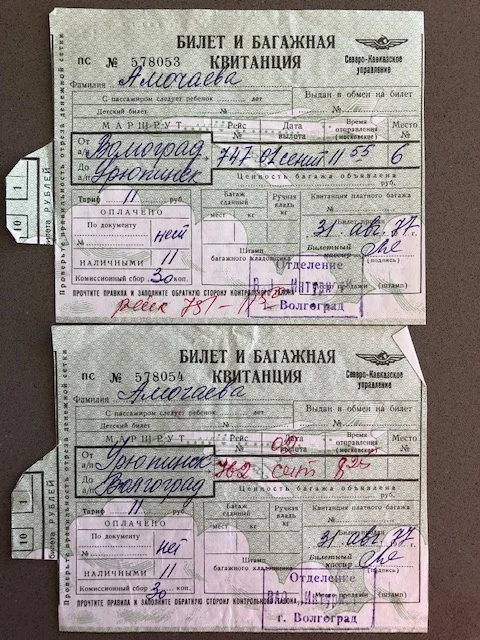 БИЛЕТ И БАГАЖНАЯ
КВИТАНЦИЯ
Северо-Кавказское
управление
ПС № 578053
Фамилия Амочаева
С пассажиром следует ребенок лет
Выдан в обмен на билет
Детский билет №
№
МАРШРУТ Рейс Дата вылета Время отправления (московское) Место №
От а/п Волгоград 747 02 сент 11 55 6
До а/п Урюпинск
Ценность багажа объявлена
руб.
Тариф 11 руб.
Багаж сданный Ручная кладь Квитанция платного багажа
мест кг кг №
ОПЛАЧЕНО
По документу нет
№
31. авг. 77 г.
Билетный кассир
(подпись)
НАЛИЧНЫМИ 11
Штамп багажного кладовщика
Комиссионный сбор 30 коп.
Отделение
Волгоград
(штамп)
ПРОЧТИТЕ ПРАВИЛА И ЗАПОЛНИТЕ ОБРАТНУЮ СТОРОНУ КОНТРОЛЬНОГО ТАЛОНА
рейс 751
Проверьте правильность отреза денежной сетки
билета РУБЛЕЙ
10
1
БИЛЕТ И БАГАЖНАЯ
КВИТАНЦИЯ
Северо-Кавказское
управление
ПС № 578054
Фамилия Амочаева
С пассажиром следует ребенок лет
Выдан в обмен на билет
Детский билет №
№
МАРШРУТ Рейс Дата вылета Время отправления (московское) Место №
От а/п Урюпинск 762 02 сент 825
До а/п Волгоград
Ценность багажа объявлена
руб.
Тариф 11 руб.
Багаж сданный Ручная кладь Квитанция платного багажа
мест кг кг №
ОПЛАЧЕНО
По документу нет
№
31. авг. 77 г.
Билетный кассир
(подпись)
НАЛИЧНЫМИ 11
Штамп багажного кладовщика
Комиссионный сбор 30 коп.
Отделение
ВАО „Интурист"
г. Волгоград
(штамп)
ПРОЧТИТЕ ПРАВИЛА И ЗАПОЛНИТЕ ОБРАТНУЮ СТОРОНУ КОНТРОЛЬНОГО ТАЛОНА
Проверьте правильность отреза денежной сетки
билета РУБЛЕЙ
10
1